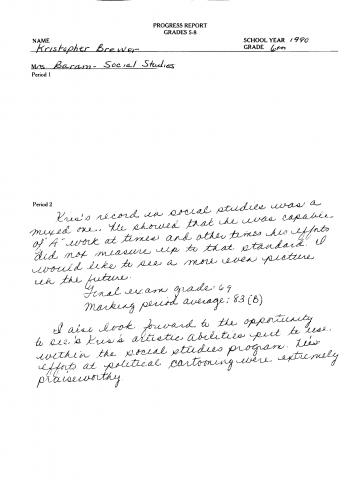 PROGRESS REPORT
GRADES 5-8
NAME SCHOOL YEAR 1990
Kristopher Brewer GRADE 6
Mrs Baram - Social Studies
Period 1
Period 2
Kris's record in social studies was a
mixed one. He showed that he was capable
of "A" work at times and other times his efforts
did not measure up to that standard. I
would like to see a more even picture
in the future.
Final exam grade: 69
Marking period average: 83 (B)
I also look forward to the opportunity
to see's Kris's artistic abilities put to use
within the social studies program. His
efforts at political cartooning were extremely
praiseworthy